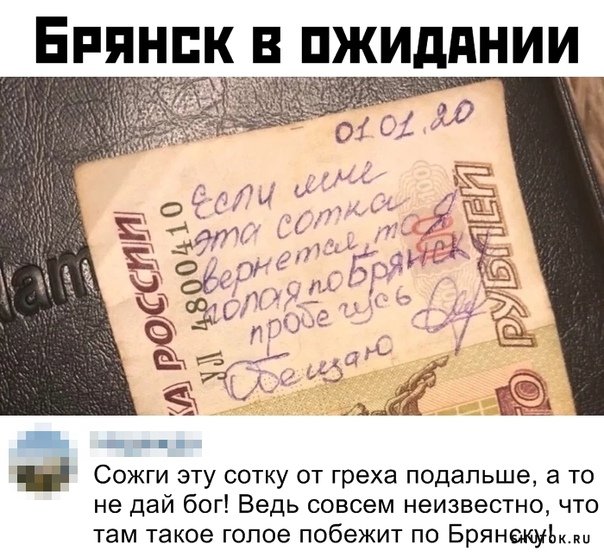 БРЯНСК В ОЖИДАНИИ
01.01.20
Если мне
эта сотка
вернется, то я
голая по Брянску
пробегусь
Обещаю
КА РОССИИ
УЛ 4800410
РУБЛЕЙ
am
Сожги эту сотку от греха подальше, а то
не дай бог! Ведь совсем неизвестно, что
там такое голое побежит по Брянску!